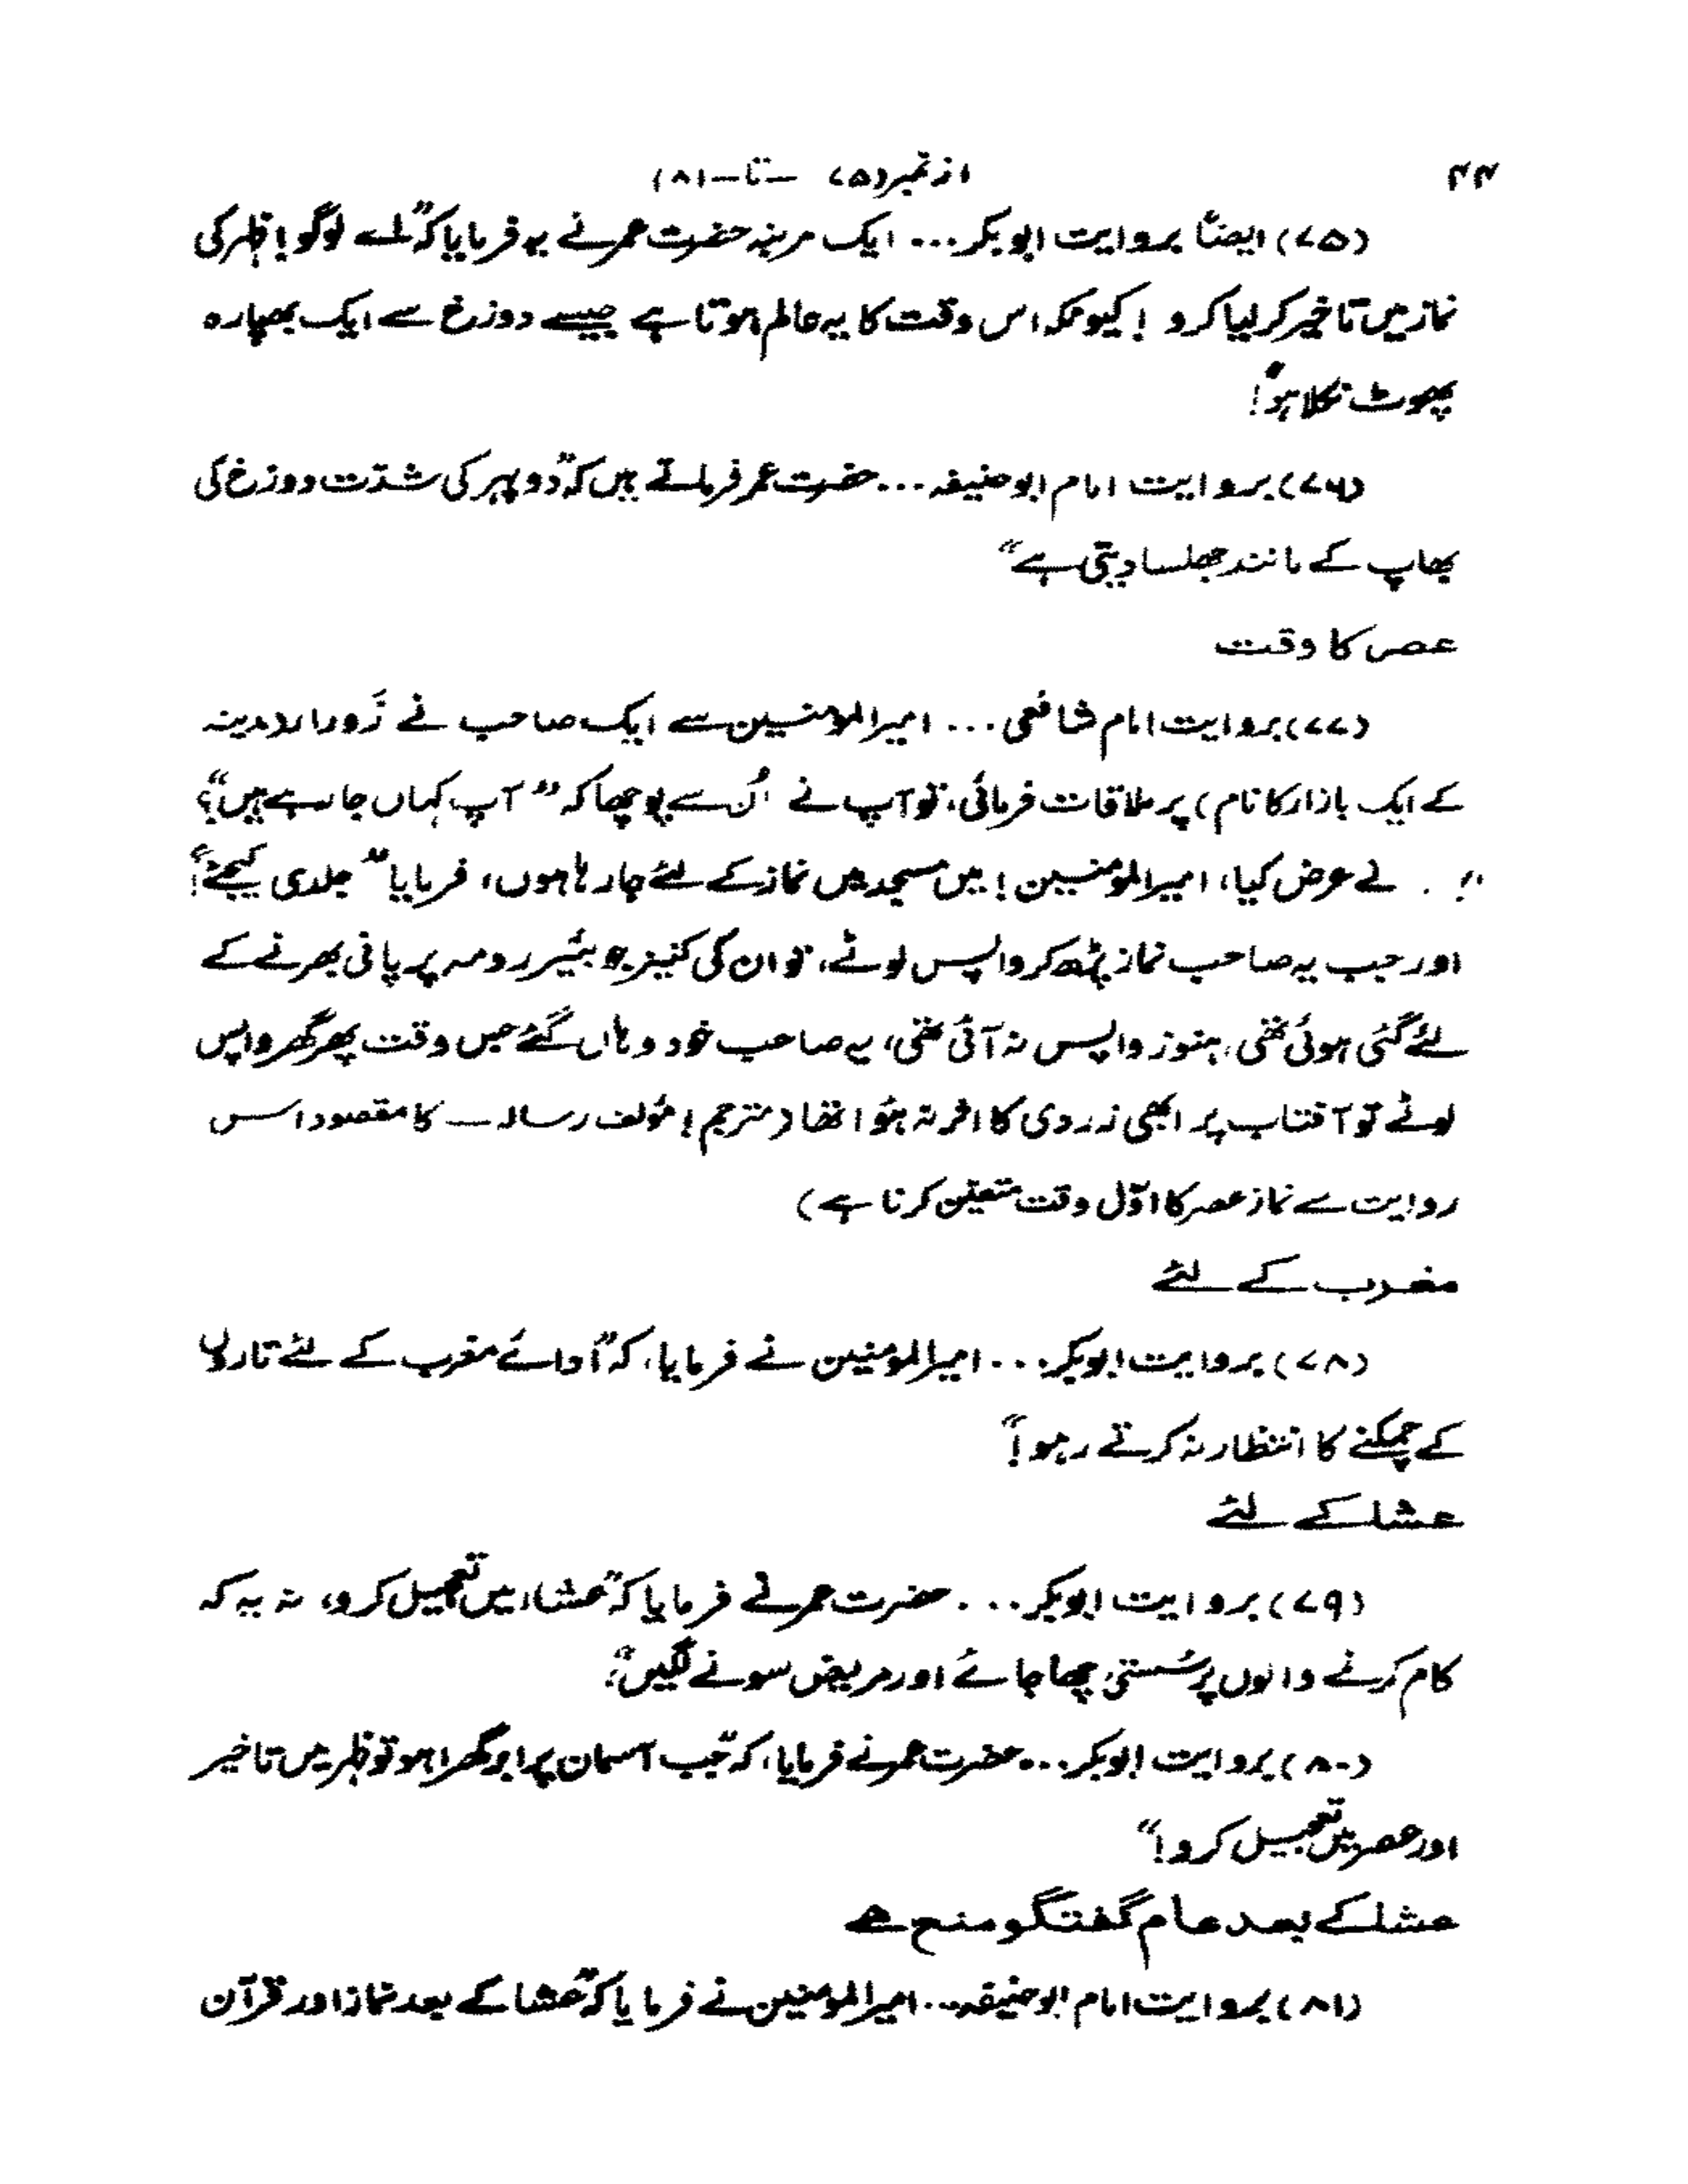 ۴۴ از نمبر (۷۵ — تا — ۸۱)
(۷۵) ایضاً بروایت ابوبکر ... ایک مرتبہ حضرت عمر نے یہ فرمایا کہ ”اے لوگو! ظہر کی
نماز میں تاخیر کر لیا کرو! کیونکہ اس وقت کا یہ عالم ہوتا ہے جیسے دوزخ سے ایک بھپارہ
پھوٹ نکلا ہو“!
(۷۶) بروایت امام ابو حنیفہ ... حضرت عمر فرماتے ہیں کہ ”دوپہر کی شدّت دوزخ کی
بھاپ کے مانند جھلسا دیتی ہے“
عصر کا وقت
(۷۷) بروایت امام شافعی ... امیرالمؤمنین سے ایک صاحب نے زَورا (مدینہ
کے ایک بازار کا نام) پر ملاقات فرمائی، تو آپ نے اُن سے پوچھا کہ ”آپ کہاں جا رہے ہیں“؟
نے عرض کیا، امیرالمؤمنین! میں مسجد میں نماز کے لئے جا رہا ہوں، فرمایا ”جلدی کیجئے“!
اور جب یہ صاحب نماز پڑھ کر واپس لوٹے، تو ان کی کنیز جو بئیر رومہ پر پانی بھرنے کے
لئے گئی ہوئی تھی، ہنوز واپس نہ آئی تھی، یہ صاحب خود وہاں گئے جس وقت پھر گھر واپس
لوٹے تو آفتاب پر ابھی زردی کا اثر نہ ہؤا تھا (مترجم! مؤلف رسالہ کا مقصود اس
روایت سے نماز عصر کا اوّل وقت متعیّن کرنا ہے)
مغرب کے لئے
(۷۸) بروایت ابوبکر ... امیرالمؤمنین نے فرمایا، کہ ”ادائے مغرب کے لئے تاروں
کے چمکنے کا انتظار نہ کرتے رہو“!
عشا کے لئے
(۷۹) بروایت ابوبکر ... حضرت عمر نے فرمایا کہ ”عشاء میں تعجیل کرو، نہ یہ کہ
کام کرنے والوں پر سُستی چھا جائے اور مریض سونے لگیں“؛
(۸۰) بروایت ابوبکر ... حضرت عمر نے فرمایا، کہ ”جب آسمان پر ابر گھرا ہو تو ظہر میں تاخیر
اور عصر میں تعجیل کرو!“
عشا کے بعد عام گفتگو منع ہے
(۸۱) بروایت امام ابو حنیفہ ... امیرالمؤمنین نے فرمایا کہ ”عشا کے بعد نماز اور قرآن